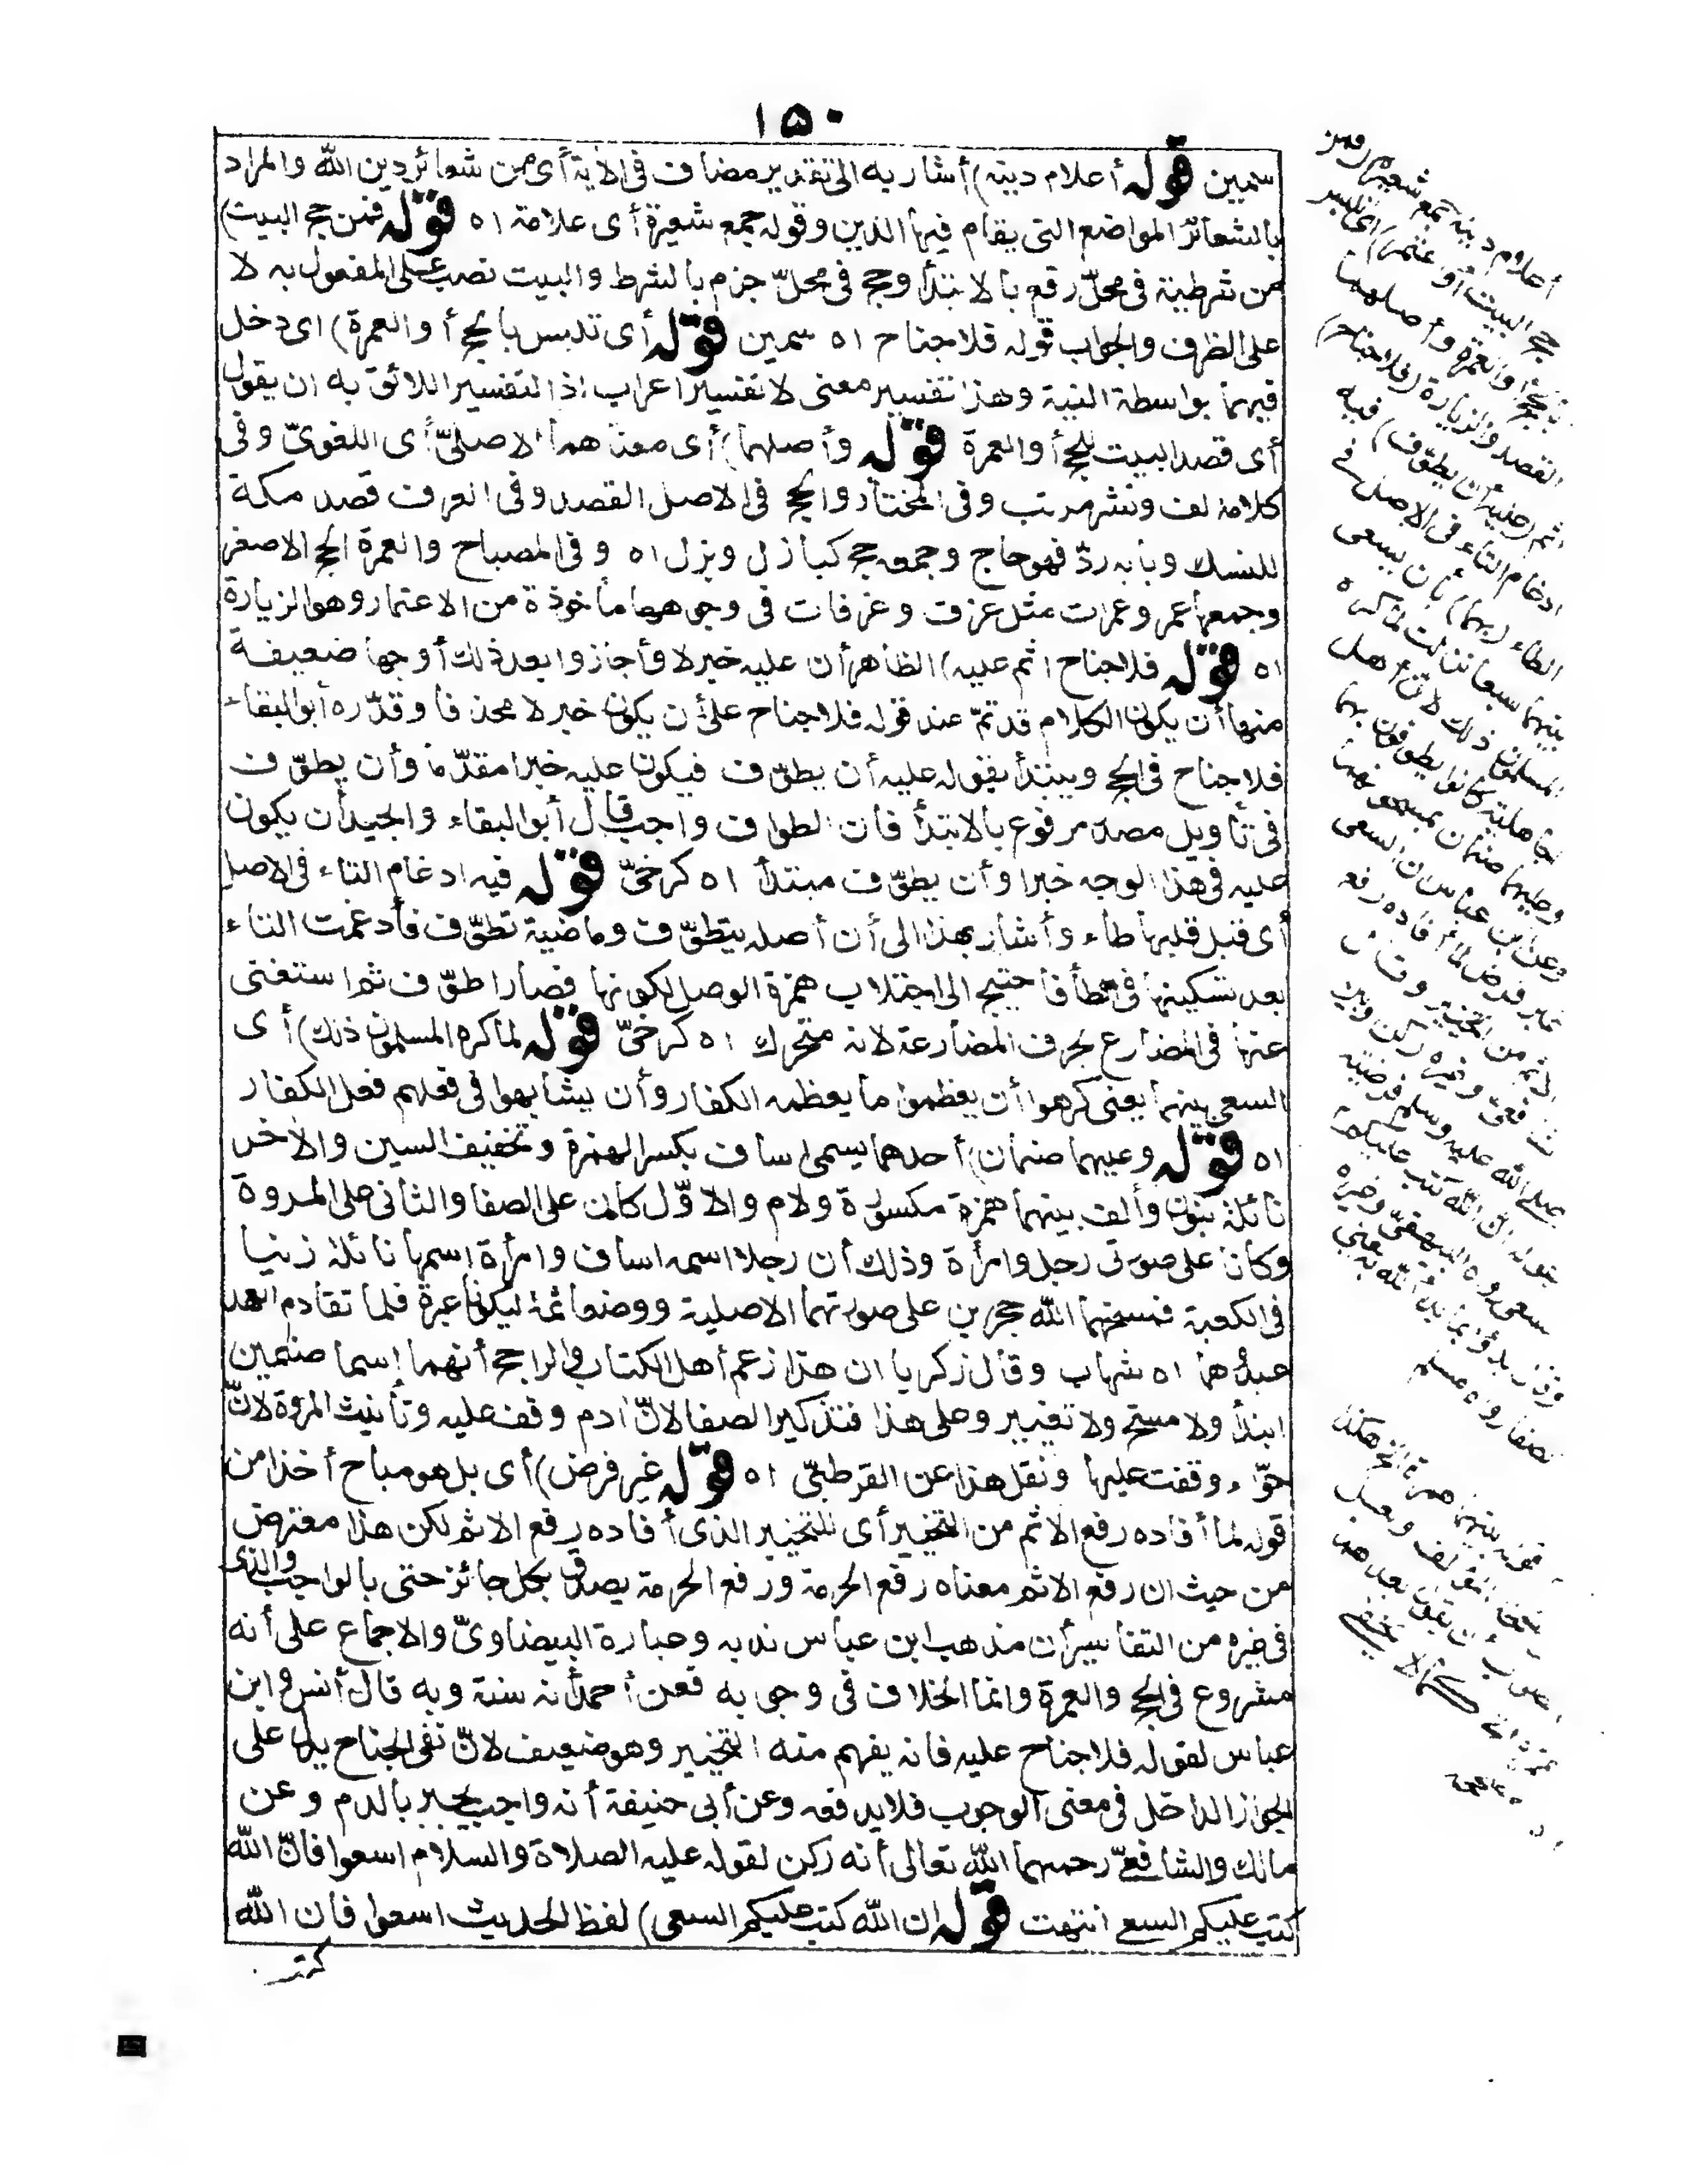 ١٥٠
سمين قوله أعلام دينه) أشار به الى تقدير مضاف فى الاية أى من شعائر دين الله والمراد
بالشعائر المواضع التى يقام فيها الدين وقوله جمع شعيرة أى علامة اه قوله فمن حج البيت)
من شرطية فى محلّ رفع بالابتدأ وحج فى محلّ جزم بالشرط والبيت نصب على المفعول به لا
على الظرف والجواب قوله فلا جناح اه سمين قوله أى تلبس بالحج أو العمرة) اى دخل
فيهما بواسطة النية وهذا تفسير معنى لا تفسير اعراب اذ التفسير اللائق به ان يقول
أى قصد البيت للحج أو العمرة قوله وأصلهما) أى معناهما الاصلىّ أى اللغوىّ وفى
كلامه لف ونشر مرتب وفى المختار والحج فى الاصل القصد وفى العرف قصد مكة
للنسك وبابه ردّ فهو حاج وجمعه حج كبازل وبزل اه وفى المصباح والعمرة الحج الاصغر
وجمعها عمر وعمرات مثل غرف وغرفات فى وجوهها مأخوذة من الاعتمار وهو الزيارة
اه قوله فلا جناح اثم عليه) الظاهر أن عليه خبر لا وأجازوا بعد ذلك أوجها ضعيفة
منها أن يكون الكلام قد تمّ عند قوله فلا جناح على أن يكون خبر لا محذفا وقدّره أبو البقاء
فلا جناح فى الحج ويبتدأ بقوله عليه أن يطوّف فيكون عليه خبرا مقدّما وأن يطوّف
فى تأويل مصدر مرفوع بالابتدأ فان الطواف واجب قال أبو البقاء والجيد أن يكون
عليه فى هذا الوجه خبرا وأن يطوّف مبتدأ اه كرخىّ قوله فيه ادغام التاء فى الاصل
أى قبل قلبها طاء وأشار بهذا الى أن أصله يتطوّف وماضيه تطوّف فأدغمت التاء
بعد تسكينها فى الطأ فاحتيج الى اجتلاب همزة الوصل لكونها فصار اطوّف ثم استغنى
عنها فى المضارع بحرف المضارعة لانه متحرك اه كرخىّ قوله لما كره المسلمون ذلك) أى
السعى بينهما يعنى كرهوا أن يعظموا ما يعظمه الكفار وأن يشابهوا فى فعلهم فعل الكفار
اه قوله وعليهما صنمان) أحدهما يسمى اساف بكسر الهمزة وتخفيف السين والاخر
نائلة بنون وألف بينهما همزة مكسورة ولام والاوّل كان على الصفا والثانى على المروة
وكانا على صورتى رجل وامرأة وذلك أن رجلا اسمه اساف وامرأة اسمها نائلة زنيا
فى الكعبة فمسخهما الله حجرين على صورتهما الاصلية ووضعا ثمة ليكونا عبرة فلما تقادم العهد
عبدوهما اه شهاب وقال زكريا ان هذا زعم أهل الكتاب والراجح أنهما إسما صنمين
ابتدأ ولا مسخ ولا تغيير وعلى هذا فتذكير الصفا لانّ ادم وقف عليه وتأنيث المروة لانّ
حوّاء وقفت عليها ونقل هذا عن القرطبىّ اه قوله غير فرض) أى بل هو مباح أخذا من
قوله لما أفاده رفع الاثم من التخيير أى للتخيير الذى أفاده رفع الاثم لكن هذا معترض
من حيث ان رفع الاثم معناه رفع الحرمة ورفع الحرمة يصدق بكل جائز حتى بالواجب والذى
فى غيره من التفاسير أن مذهب ابن عباس ندبه وعبارة البيضاوىّ والاجماع على أنه
مشروع فى الحج والعمرة وانما الخلاف فى وجوبه فعن أحمد أنه سنة وبه قال أنس وابن
عباس لقوله فلا جناح عليه فانه يفهم منه التخيير وهو ضعيف لانّ نفى الجناح يدل على
الجواز الداخل فى معنى الوجوب فلا يدفعه وعن أبى حنيفة أنه واجب يجبر بالدم وعن
مالك والشافعىّ رحمهما الله تعالى أنه ركن لقوله عليه الصلاة والسلام اسعوا فانّ الله
كتب عليكم السعى انتهت قوله ان الله كتب عليكم السعى) لفظ الحديث اسعوا فان الله
كتب
أعلام دينه جمع شعيرة (فمن
حج البيت أو عتمر) أى تلبس
بالحج أو العمرة وأصلهما
القصد والزيارة (فلا جناح)
اثم (عليه أن يطوّف) فيه
ادغام التاء فى الاصل فى
الطاء (بهما) بأن يسعى
بينهما سبعا نزلت لما كره
المسلمون ذلك لانّ أهل
الجاهلية كانوا يطوفون بهما
وعليهما صنمان يمسحونهما
وعن ابن عباس ان السعى
غير فرض لما أفاده رفع
الاثم من التخيير وقال
الشافعىّ وغيره ركن وبين
صلى الله عليه وسلم فرضيته
بقوله ان الله كتب عليكم
السعى رواه البيهقىّ وغيره
وقال ابدؤا بما بدأ الله به يعنى
الصفا رواه مسلم